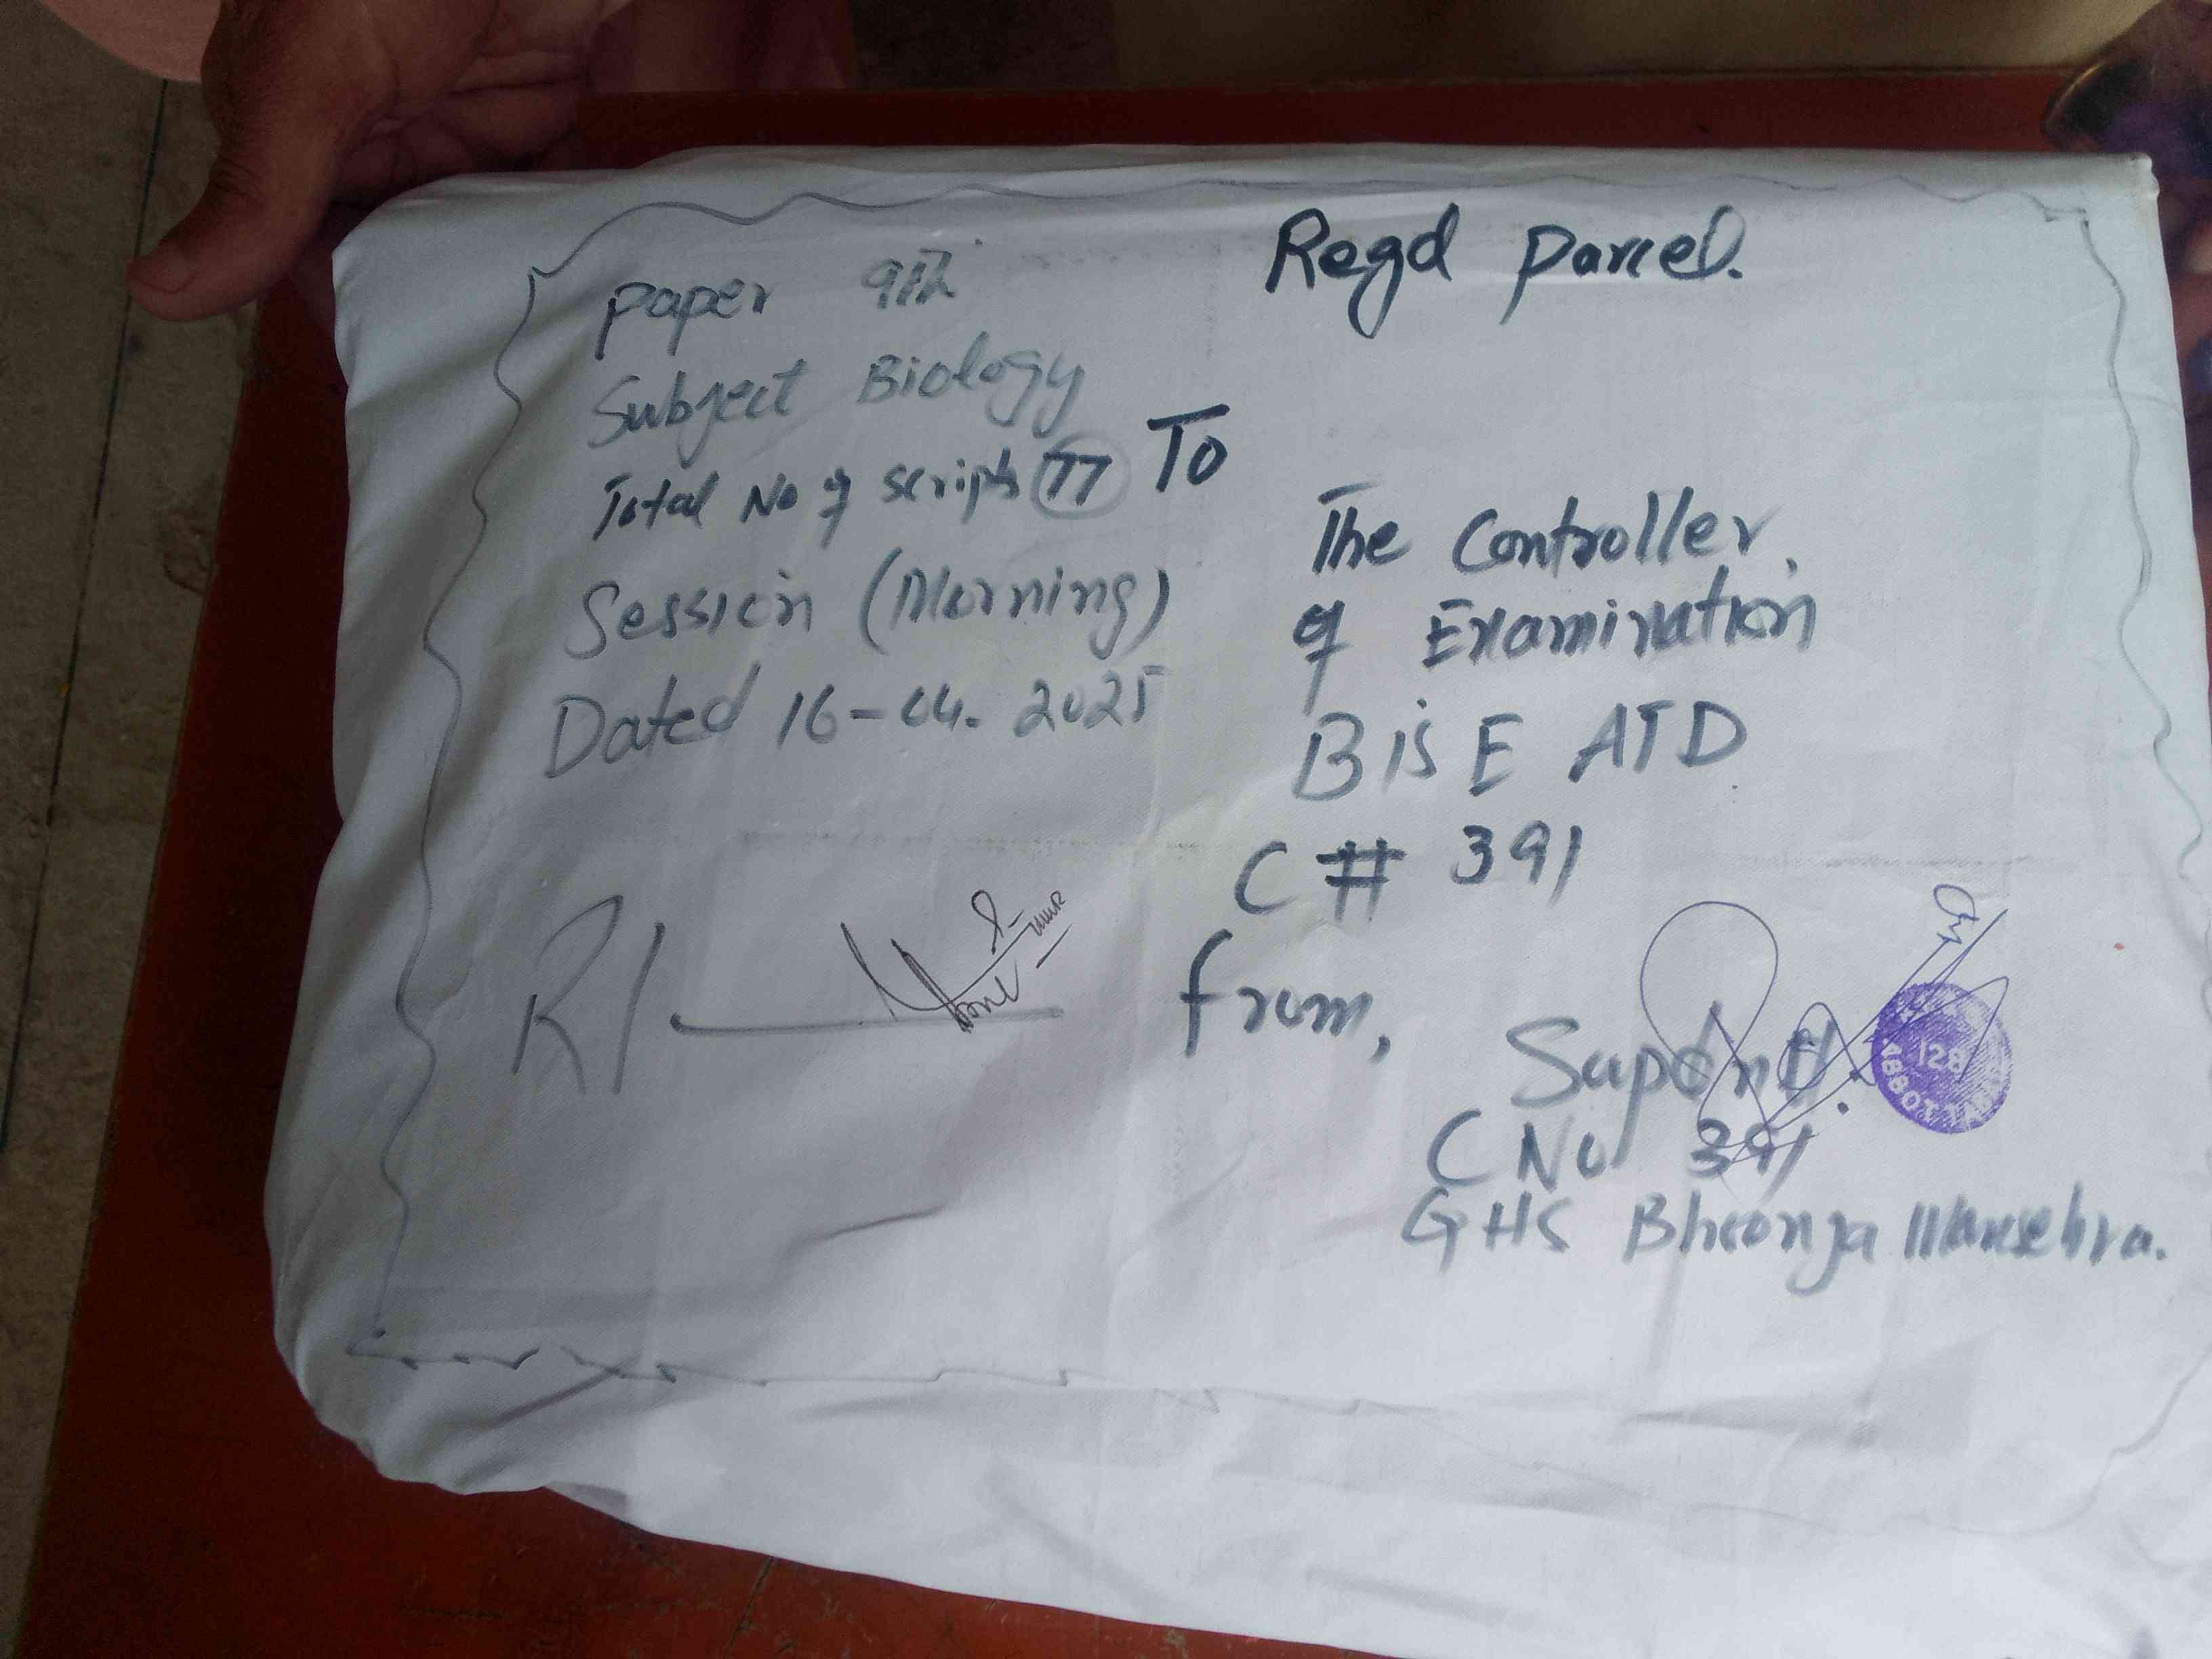 Regd parcel.
paper 9th
Subject Biology
Total No of scripts 77
Session (Morning)
Dated 16-04-2025
To
The Controller,
of Examination
BiSE ATD
C # 391
R1
from,
Supdntt.
C No 391
GHS Bheonja Mansehra.
128